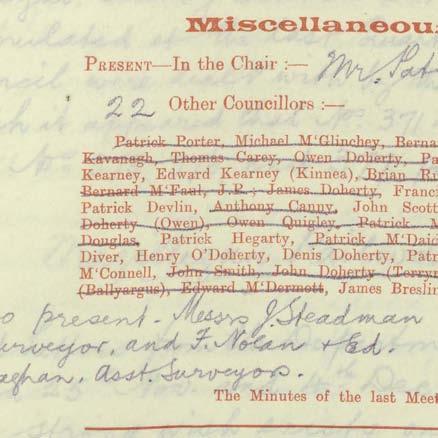 Miscellaneou
PRESENT—In the Chair :— Mr. Pat
22 Other Councillors :—
Patrick Porter, Michael M'Glinchey, Berna
Kavanagh, Thomas Carey, Owen Doherty, Pa
Kearney, Edward Kearney (Kinnea), Brian Ru
Bernard M'Faul, J.P.; James Doherty, Franc
Patrick Devlin, Anthony Canny, John Scott
Doherty (Owen), Owen Quigley, Patrick M
Douglas, Patrick Hegarty, Patrick M'Daid
Diver, Henry O'Doherty, Denis Doherty, Patr
M'Connell, John Smith, John Doherty (Terry
(Ballyargus), Edward M'Dermott, James Breslin
o present. Messrs J. Steadman
urveyor, and F. Nolan + Ed.
aghan, Asst. Surveyors.
The Minutes of the last Meet